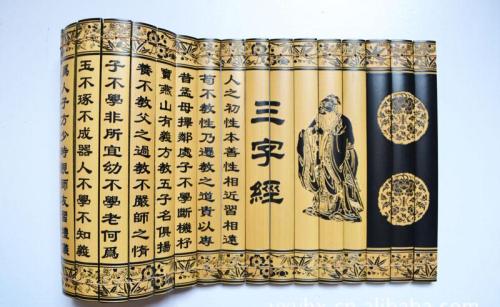 三字經
人之初性本善性相近習相遠
苟不教性乃遷教之道貴以專
昔孟母擇鄰處子不學斷機杼
竇燕山有義方教五子名俱揚
養不教父之過教不嚴師之惰
子不學非所宜幼不學老何爲
玉不琢不成器人不學不知義
爲人子方少時親師友習禮